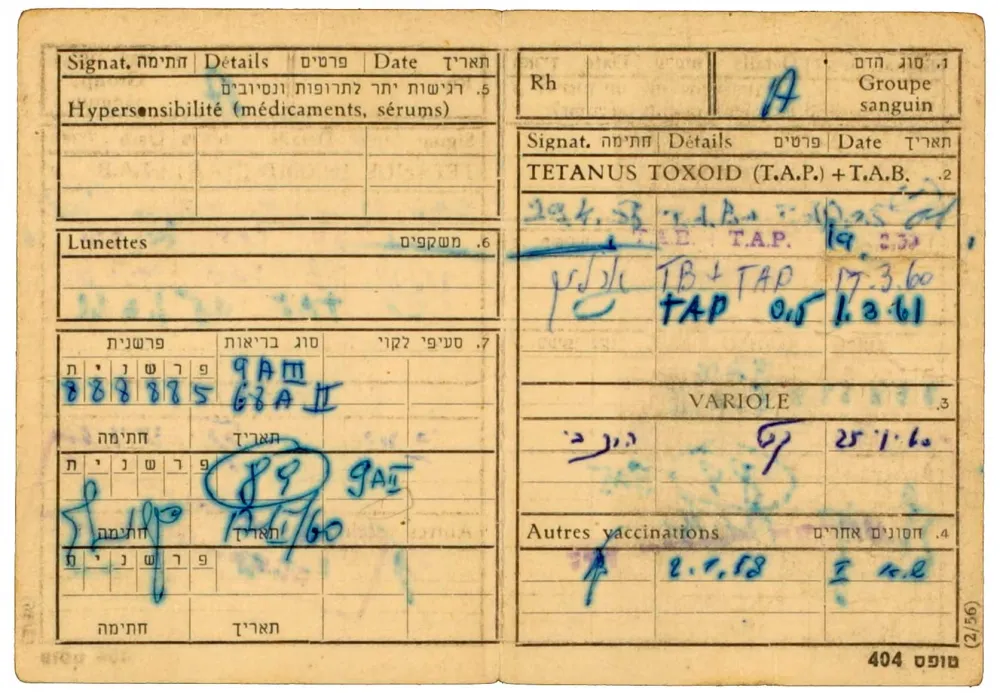 Signat. חתימה Détails פרטים Date תאריך
5. רגישות יתר לתרופות ונסיובים
Hypersensibilité (médicaments, sérums)
Lunettes 6. משקפים
7. סעיפי לקוי סוג בריאות פרשנית
פ ר ש נ י ת
9 A III
888885 68A II
חתימה תאריך
פ ר ש נ י ת
89 9AII
חתימה תאריך 17/II/60
פ ר ש נ י ת
חתימה תאריך
1. סוג הדם
Rh A Groupe
sanguin
Signat. חתימה Détails פרטים Date תאריך
TETANUS TOXOID (T.A.P.) + T.A.B. 2.
29.4.58
T.A.B. T.A.P. 19
TB + TAP 17.3.60
TAP 0,5 1.3.61
VARIOLE 3.
25.1.60
Autres vaccinations 4. חסונים אחרים
2.1.58 I
(2/56)
טופס 404